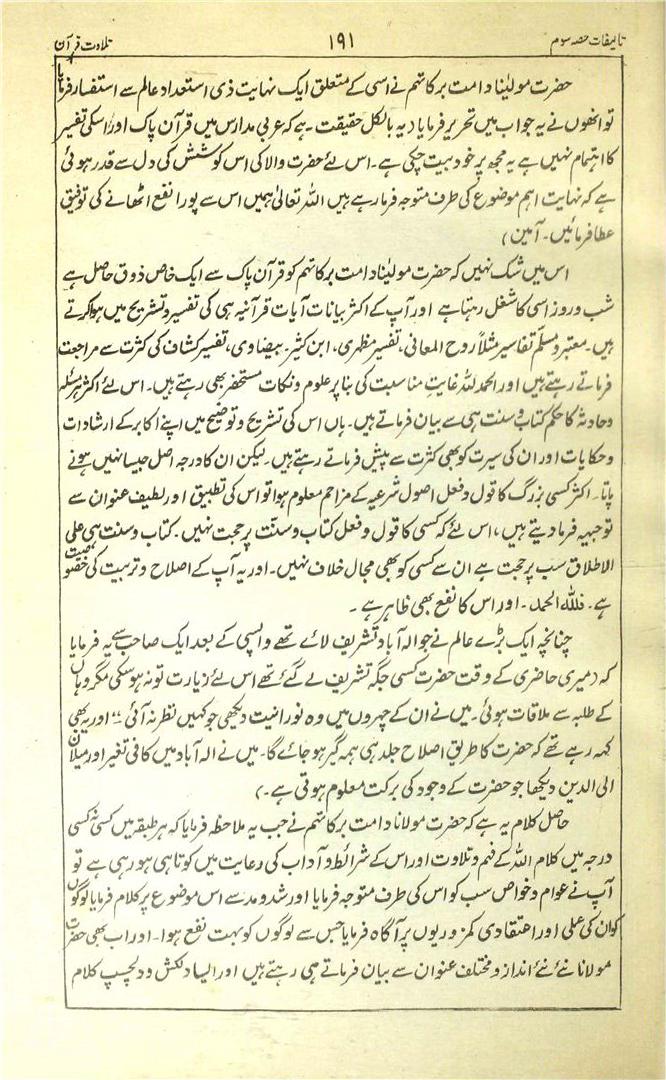 تالیفات حصہ سوم ۱۹۱ تلاوت قرآن
حضرت مولٰینا دامت برکاتہم نے اسی کے متعلق ایک نہایت ذی استعداد عالم سے استفسار فرمایا
تو انھوں نے یہ جواب میں تحریر فرمایا دیہ بالکل حقیقت ہے کہ عربی مدارس میں قرآن پاک اور اسکی تفسیر
کا اہتمام نہیں ہے یہ مجھ پر خود بیت چکی ہے۔ اس لئے حضرت والا کی اس کوشش کی دل سے قدر ہوئی
ہے کہ نہایت اہم موضوع کی طرف متوجہ فرما رہے ہیں اللہ تعالیٰ ہمیں اس سے پورا نفع اٹھانے کی توفیق
عطا فرمائیں۔ آمین)
اس میں شک نہیں کہ حضرت مولٰینا دامت برکاتہم کو قرآن پاک سے ایک خاص ذوق حاصل ہے
شب و روز اسی کا شغل رہتا ہے اور آپ کے اکثر بیانات آیات قرآنیہ ہی کی تفسیر و تشریح میں ہوا کرتے
ہیں۔ معتبر و مسلّم تفاسیر مثلاً روح المعانی، تفسیر مظہری، ابن کثیر۔ بیضاوی، تفسیر کشاف کی کثرت سے مراجعت
فرماتے رہتے ہیں اور الحمد للہ غایتِ مناسبت کی بنا پر علوم و نکات مستحضر بھی رہتے ہیں۔ اس لئے اکثر ہر مسئلہ
و حادثہ کا حکم کتاب و سنت ہی سے بیان فرماتے ہیں۔ ہاں اس کی تشریح و توضیح میں اپنے اکابر کے ارشادات
و حکایات اور ان کی سیرت کو بھی کثرت سے پیش فرماتے رہتے ہیں۔ لیکن ان کا درجہ اصل جیسا نہیں ہونے
پاتا۔ اکثر کسی بزرگ کا قول و فعل اصول شرعیہ کے مزاحم معلوم ہوا تو اس کی تطبیق اور لطیف عنوان سے
توجیہ فرما دیتے ہیں، اس لئے کہ کسی کا قول و فعل کتاب و سنّت پر حجت نہیں۔ کتاب و سنت ہی علی
الاطلاق سب پر حجت ہے ان سے کسی کو بھی مجال خلاف نہیں۔ اور یہ آپ کے اصلاح و تربیت کی خصوصیت
ہے۔ فللّٰہ الحمد۔ اور اس کا نفع بھی ظاہر ہے۔
چنانچہ ایک بڑے عالم نے جو الہ آباد تشریف لائے تھے واپسی کے بعد ایک صاحب سے یہ فرمایا
کہ دمیری حاضری کے وقت حضرت کسی جگہ تشریف لے گئے تھے اس لئے زیارت تو نہ ہو سکی مگر وہاں
کے طلبہ سے ملاقات ہوئی۔ میں نے ان کے چہروں میں وہ نورانیت دیکھی جو کہیں نظر نہ آئی،، اور یہ بھی
کہہ رہے تھے کہ حضرت کا طریق اصلاح جلد ہی ہمہ گیر ہو جائے گا۔ میں نے الہ آباد میں کافی تغیر اور میلان
الی الدین دیکھا جو حضرت کے وجود کی برکت معلوم ہوتی ہے۔)
حاصل کلام یہ ہے کہ حضرت مولانا دامت برکاتہم نے جب یہ ملاحظہ فرمایا کہ ہر طبقہ میں کسی نہ کسی
درجہ میں کلام اللہ کے فہم و تلاوت اور اس کے شرائط و آداب کی رعایت میں کوتاہی ہو رہی ہے تو
آپ نے عوام و خواص سب کو اس کی طرف متوجہ فرمایا اور شد و مد سے اس موضوع پر کلام فرمایا لوگوں
کو ان کی علی اور اعتقادی کمزوریوں پر آگاہ فرمایا جس سے لوگوں کو بہت نفع ہوا۔ اور اب بھی حضرت
مولانا نئے نئے انداز و مختلف عنوان سے بیان فرماتے ہی رہتے ہیں اور ایسا دلکش و دلچسپ کلام